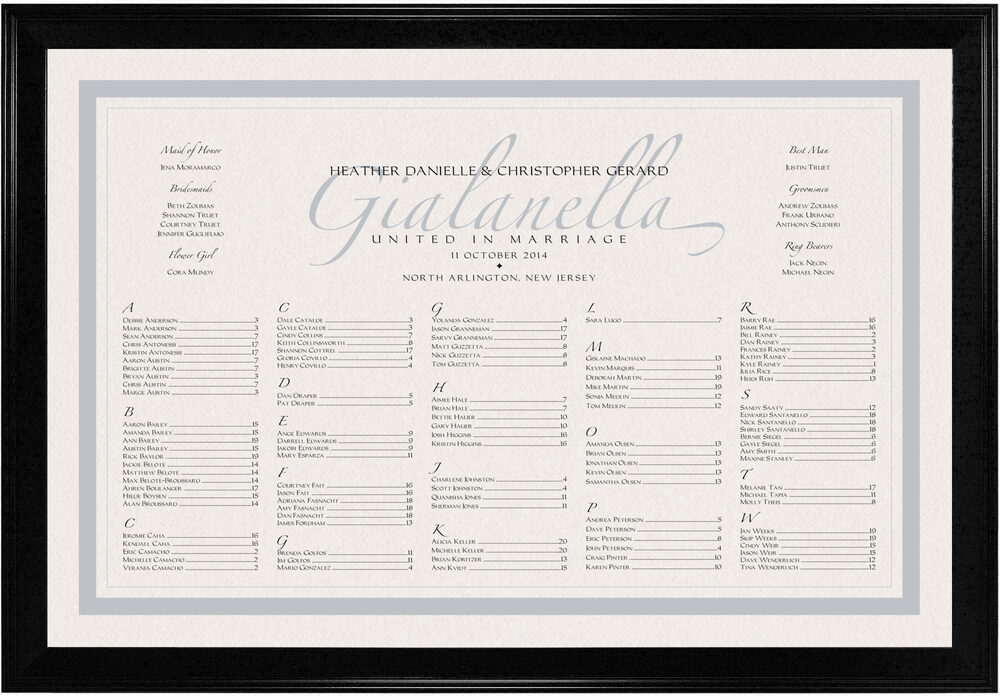 Maid of Honor
Jena Moramarco
Bridesmaids
Beth Zoumas
Shannon Truet
Courtney Truet
Jennifer Guglielmo
Flower Girl
Cora Mundy
Heather Danielle & Christopher Gerard
Gialanella
United in Marriage
11 October 2014
North Arlington, New Jersey
Best Man
Justin Truet
Groomsmen
Andrew Zoumas
Frank Urbano
Anthony Scudieri
Ring Bearers
Jack Negin
Michael Negin
A
Debbie Anderson 3
Mark Anderson 3
Sean Anderson 7
Chris Antonessi 17
Kristin Antonessi 17
Aaron Austin 7
Brigitte Austin 7
Bryan Austin 3
Chris Austin 7
Marge Austin 3
B
Aaron Bailey 15
Amanda Bailey 15
Ann Bailey 19
Austin Bailey 15
Rick Baylor 19
Jackie Belote 14
Matthew Belote 14
Max Belote-Broussard 14
Ahren Boulanger 17
Hilde Boysen 15
Alan Broussard 14
C
Jeromie Caha 16
Kendall Caha 16
Eric Camacho 2
Michelle Camacho 2
Verania Camacho 2
C
Dale Catalde 3
Gayle Catalde 3
Cindy Collins 7
Keith Collinsworth 8
Shannon Cottrel 17
Gloria Covillo 4
Henry Covillo 4
D
Dan Draper 5
Pat Draper 5
E
Ange Edwards 9
Darrell Edwards 9
Jakob Edwards 9
Mary Esparza 11
F
Courtney Fait 16
Jason Fait 16
Adriana Fasnacht 18
Amy Fasnacht 18
Dan Fasnacht 18
James Fordham 13
G
Brenda Golfos 11
Jim Golfos 11
Mario Gonzalez 4
G
Yolanda Gonzalez 4
Jason Granneman 17
Sarvy Granneman 17
Matt Guzzetta 8
Nick Guzzetta 8
Tom Guzzetta 8
H
Aimee Hale 7
Brian Hale 7
Bettie Halier 10
Gary Halier 10
Josh Higgins 16
Kristin Higgins 16
J
Charlene Johnston 4
Scott Johnston 4
Quanisha Jones 11
Sherman Jones 11
K
Alicia Keller 20
Michelle Keller 20
Brian Koritzer 13
Ann Kvidt 15
L
Sara Lugo 7
M
Gislaine Machado 13
Kevin Marquis 11
Deborah Martin 19
Mike Martin 19
Sonia Medlin 12
Tom Medlin 12
O
Amanda Olsen 13
Brian Olsen 13
Jonathan Olsen 13
Kevin Olsen 13
Samantha Olsen 13
P
Andrea Peterson 5
Dave Peterson 5
Eric Peterson 8
John Peterson 4
Craig Pinter 10
Karen Pinter 10
R
Barry Rae 16
Jaimie Rae 16
Bill Rainey 2
Dan Rainey 3
Frances Rainey 2
Kathy Rainey 3
Kyle Rainey 1
Julia Rice 8
Heidi Ruhi 13
S
Sandy Saaty 12
Edward Santanello 18
Nick Santanello 18
Shirley Santanello 18
Bernie Siegel 6
Gayle Siegel 6
Amy Smith 6
Maxine Stanley 6
T
Melanie Tan 17
Michael Tapia 11
Molly Theis 8
W
Jan Weeks 19
Skip Weeks 19
Cindy Weir 15
Jason Weir 15
Dave Wenderlich 12
Tina Wenderlich 12